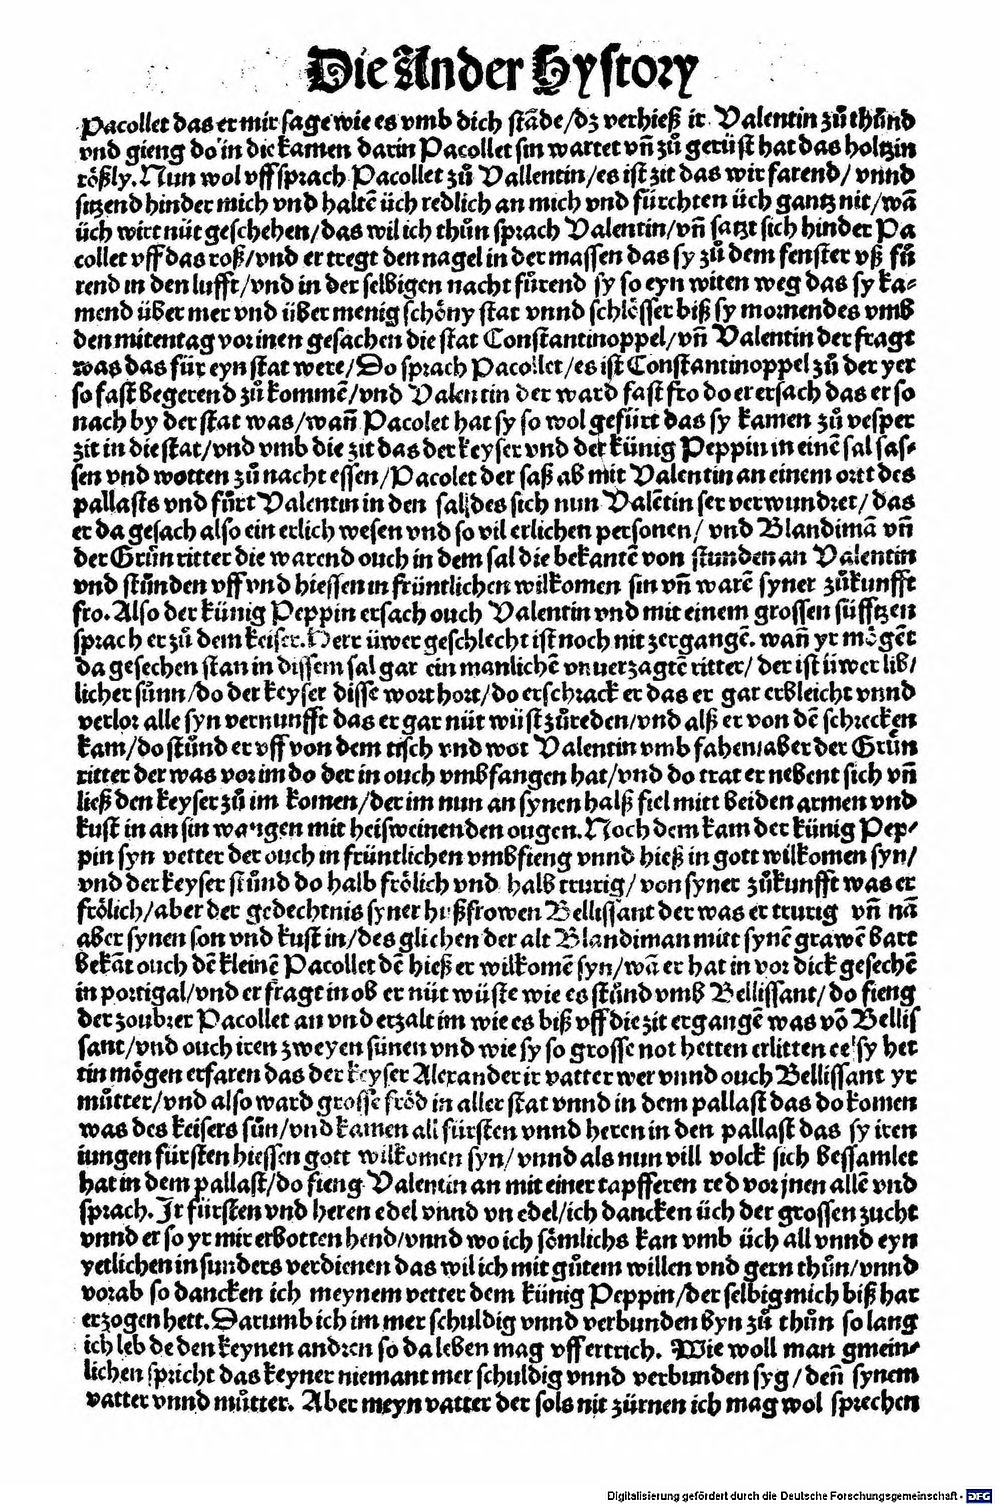 Die Ander Hystory
Pacollet das er mir sage wie es vmb dich stãde/dz verhieß ir Valentin zů thůnd
vnd gieng do in die kamen darin Pacollet sin wartet vñ zů gerüst hat das holtzin
rößly. Nun wol vff sprach Pacollet zů Vallentin/es ist zit das wir farend/vnnd
sitzend hinder mich vnd haltẽ üch redlich an mich vnd fürchten üch gantz nit/wã
üch wirt nüt geschehen/das wil ich thůn sprach Valentin/vñ satzt sich hinder Pa
collet vff das roß/vnd er tregt den nagel in der massen das sy zů dem fenster vß fů
rend in den lufft/vnd in der selbigen nacht fůrend sy so eyn witen weg das sy ka-
mend über mer vnd über menig schöny stat vnnd schlösser biß sy mornendes vmb
den mitentag vor inen gesachen die stat Constantinoppel/vñ Valentin der fragt
was das für eyn stat were/Do sprach Pacollet/es ist Constantinoppel zů der yer
so fast begerend zů kommẽ/vnd Valentin der ward fast fro do er ersach das er so
nach by der stat was/wañ Pacolet hat sy so wol gefürt das sy kamen zů vesper
zit in die stat/vnd vmb die zit das der keyser vnd der künig Peppin in einẽ sal sas-
sen vnd wotten zů nacht essen/Pacolet der saß ab mit Valentin an einem ortt des
pallasts vnd fůrt Valentin in den sal/des sich nun Valẽtin ser verwundret/das
er da gesach also ein erlich wesen vnd so vil erlichen personen/ vnd Blandimã vñ
der Grůn ritter die warend ouch in dem sal die bekantẽ von stunden an Valentin
vnd stůnden vff vnd hiessen in früntlichen wilkomen sin vñ warẽ syner zůkunfft
fro. Also der künig Peppin ersach ouch Valentin vnd mit einem grossen süfftzen
sprach er zů dem keiser. Herr üwer geschlecht ist noch nit zergangẽ. wañ yr mögẽt
da gesechen stan in dissem sal gar ein manlichẽ vnuerzagtẽ ritter/ der ist üwer lib/
licher sůnn/do der keyser disse wort hort/do erschrack er das er gar erbleicht vnnd
verlor alle syn vernunfft das er gar nüt wüst zůreden/vnd alß er von dẽ schrecken
kam/do stůnd er vff von dem tisch vnd wot Valentin vmb fahen/aber der Grůn
ritter der was vor im do der in ouch vmbfangen hat/vnd do trat er nebent sich vñ
ließ den keyser zů im komen/der im nun an synen halß fiel mitt beiden armen vnd
kust in an sin wangen mit heisweinenden ougen. Noch dem kam der künig Pep/
pin syn vetter der ouch in früntlichen vmbfieng vnnd hieß in gott wilkomen syn/
vnd der keyser stůnd do halb frölich vnd halb trurig/ von syner zůkunfft was er
frölich/aber der gedechtnis syner hußfrowen Bellissant der was er trurig vñ nã
aber synen son vnd kust in/des glichen der alt Blandiman mitt synẽ grawẽ bart
bekãt ouch dẽ kleinẽ Pacollet dẽ hieß er wilkomẽ syn/wã er hat in vor dick gesechẽ
in portigal/vnd er fragt in ob er nüt wüste wie es stůnd vmb Bellissant/do fieng
der zoubrer Pacollet an vnd erzalt im wie es biß vff die zit ergangẽ was võ Bellis
sant/vnd ouch iren zweyen sünen vnd wie sy so grosse not hetten erlitten ee sy het
tin mögen erfaren das der keyser Alexander ir vatter wer vnnd ouch Bellissant yr
můtter/vnd also ward grosse fröd in aller stat vnnd in dem pallast das do komen
was des keisers sůn/vnd kamen all fürsten vnnd heren in den pallast das sy iren
iungen fürsten hiessen gott wilkomen syn/ vnnd als nun vill volck sich bessamlet
hat in dem pallast/do fieng Valentin an mit einer tapfferen red vor jnen allẽ vnd
sprach. Ir fürsten vnd heren edel vnnd vn edel/ich dancken üch der grossen zucht
vnnd er so yr mir erbotten hend/vnnd wo ich sömlichs kan vmb üch all vnnd eyn
yetlichen in sunders verdienen das wil ich mit gůtem willen vnd gern thůn/vnnd
vorab so dancken ich meynem vetter dem künig Peppin/der selbig mich biß har
erzogen hett. Darumb ich im mer schuldig vnnd verbunden byn zů thůn so lang
ich leb de den keynen andren so da leben mag vff ertrich. Wie woll man gmein/
lichen spricht das keyner niemant mer schuldig vnnd verbunden syg/deñ synem
vatter vnnd můtter. Aber meyn vatter der sols nit zürnen ich mag wol sprechen
Digitalisierung gefördert durch die Deutsche Forschungsgemeinschaft - DFG